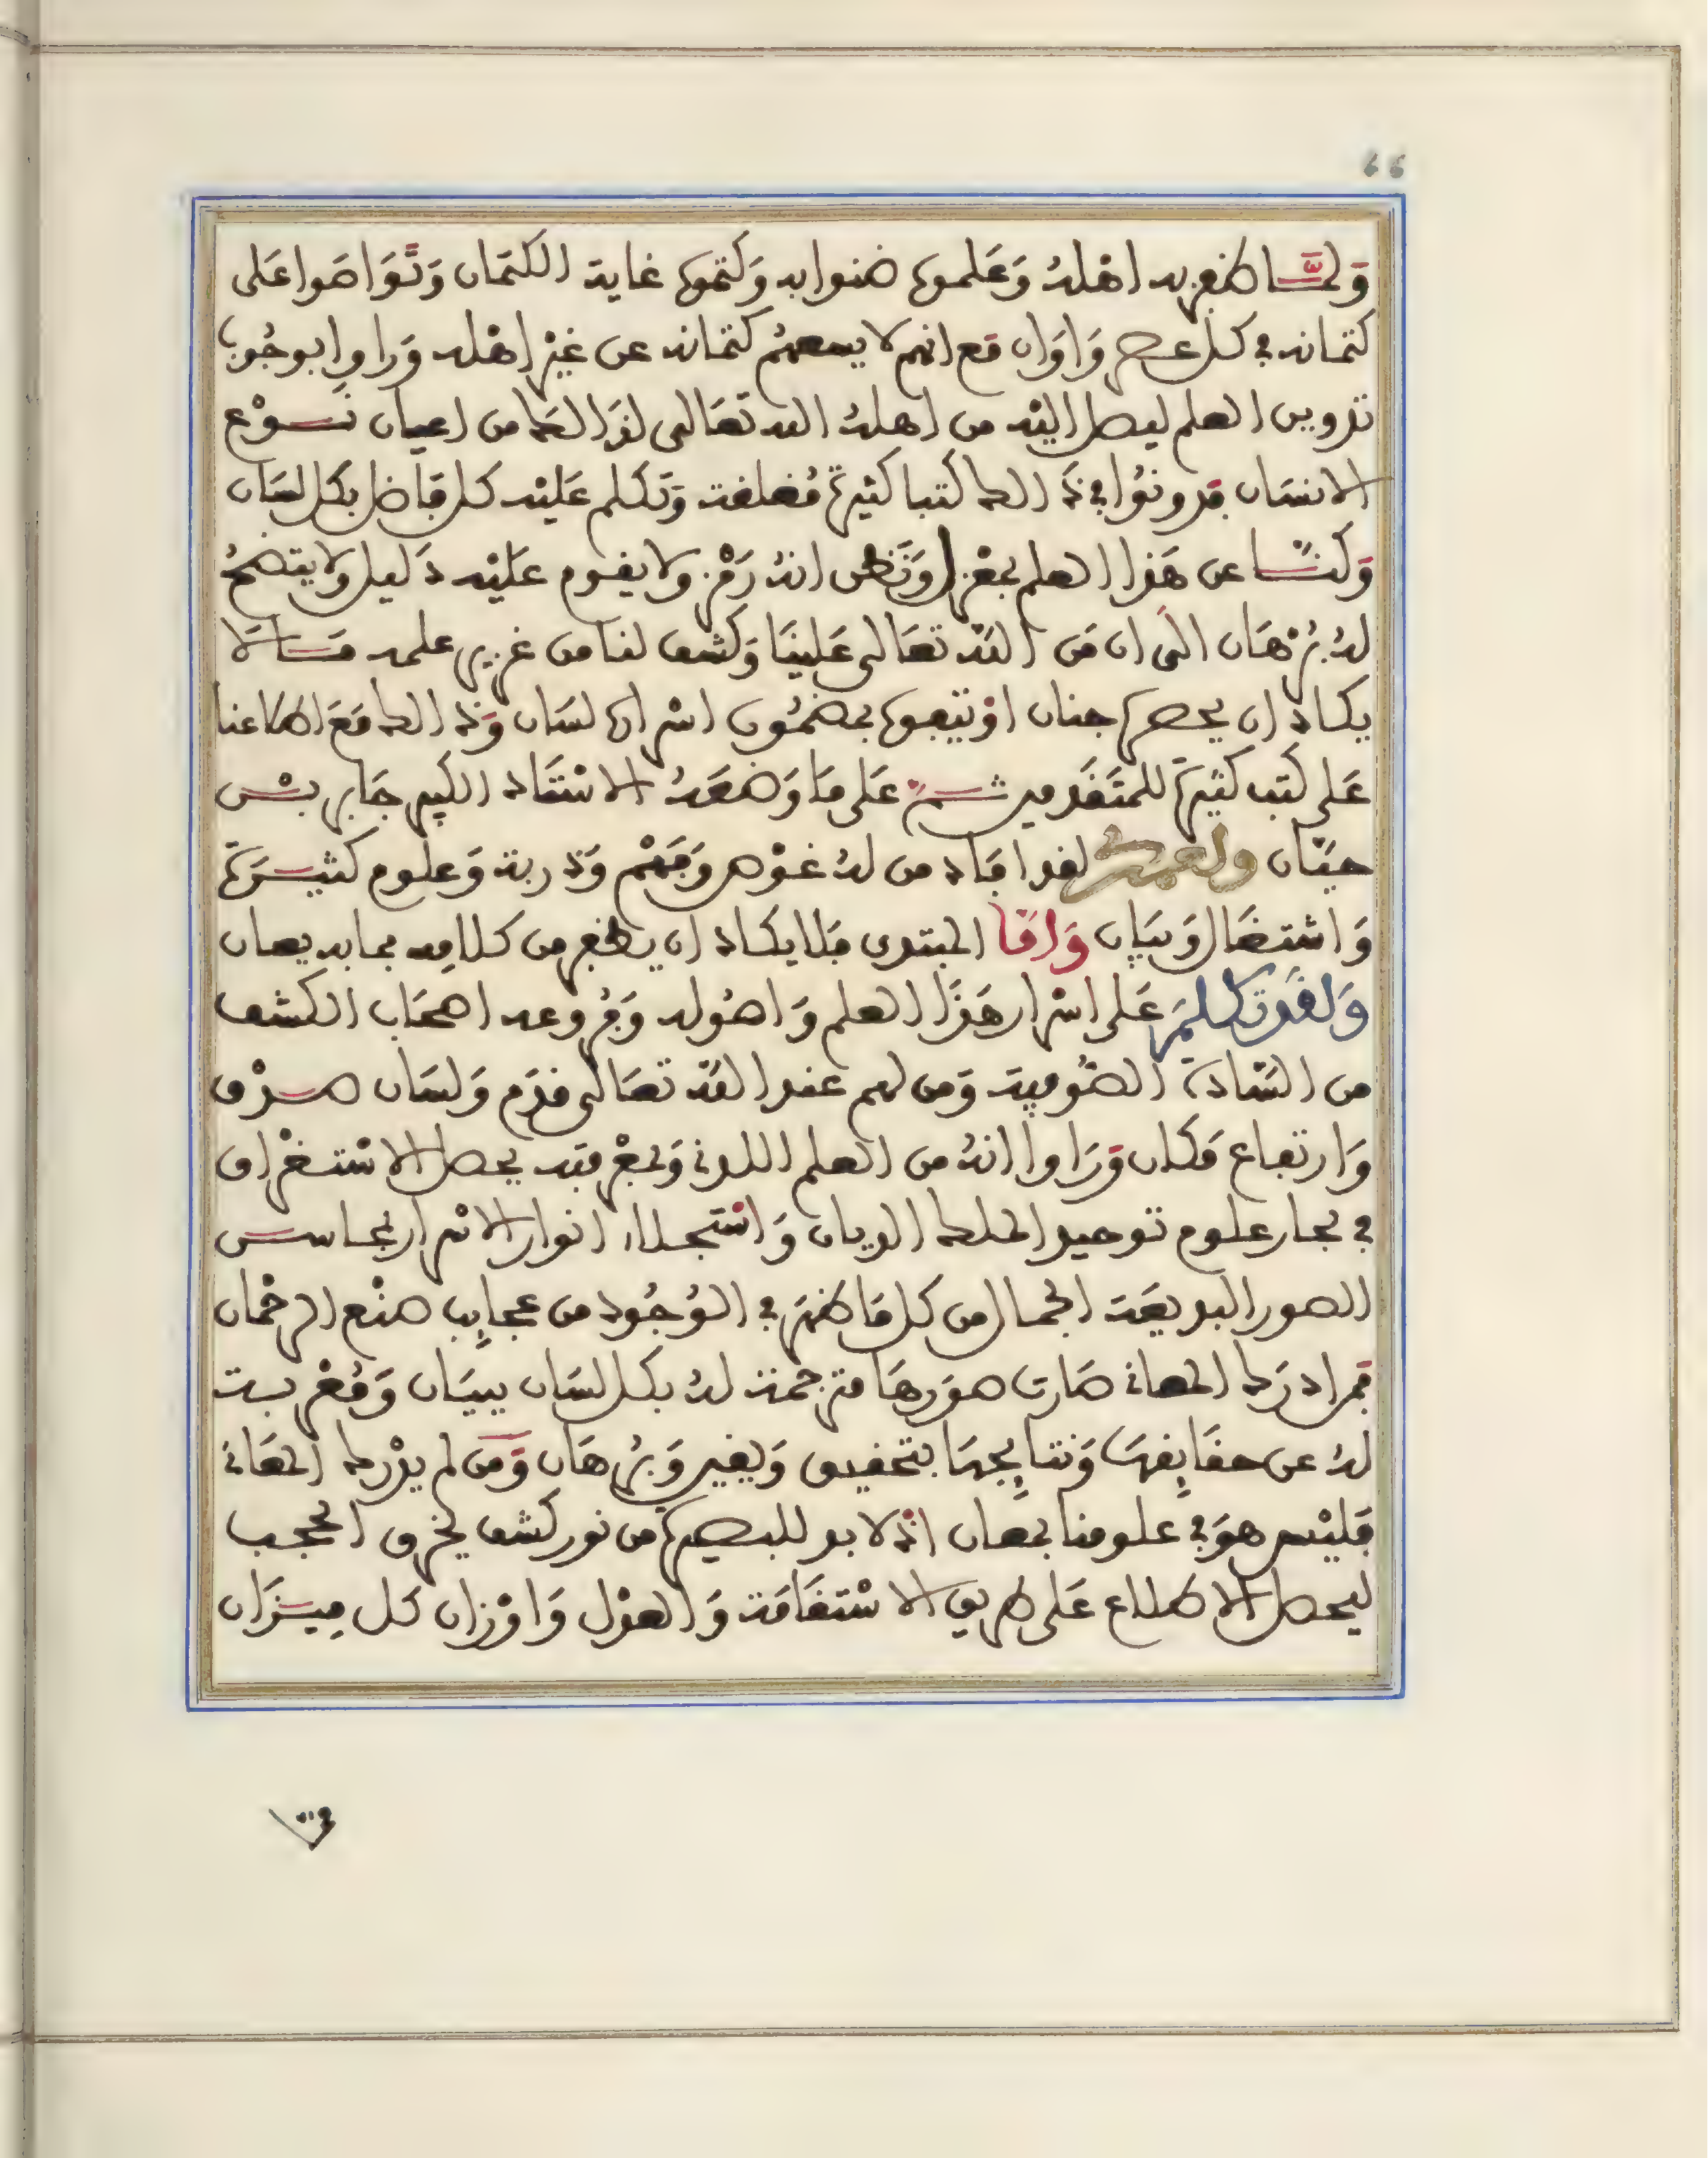 66
وَلَمَّا ظفر به اهْلهُ وَعَلموه ضنوا به وَكَتموه غاية الكتمَان وَتَوَاصَوا عَلى
كتمانه في كل عصر وَاوَان مَع انهم لا يسعهُم كتمانه عن غيْر اهْله وَراوا بوجُوب
تدوين العلم ليصل اليْه من اهلهُ الله تعَالى لذَالكَ من اعيان نَوْع
الانسَان فدونوُا في ذَالك كتبا كثيرة مُغلفة وَتكلم عَليْه كل فَاضل بكل لسَان
وَكنَّا عن هَذا العلم بمعْزل وَنَظن انهُ رَمْز ولا يقوم عليْه دَليل ولا يتضحُ
لهُ بُرْهَان الى ان مَن اللهُ تعَالى عَلينَا وَكشف لنا من غزير علمه مَا لَا
يكاد ان يحصره جنان اوْ يتبعوه بمضمُون اسْراره لسَان وَذالك مَعَ اطلاعنا
عَلى كتب كثيرَة للمتَقَدمين ثم عَلى مَا وَضعَهُ الاسْتَاد الكبير جَابر بْن
حيَّان ولعمري لقد افَاد من لهُ غوْص وَفَهْم وَدربة وَعلوم كثيرَة
وَاشتغَال وَبيَان وَامَّا المبتدي فلا يكاد ان يظفر من كلامِه بما به يعان
وَلقَد تكلمَ عَلى اسْرار هَذَا العلم وَاصُوله وَفُروعه اصحَاب الكشف
من السَّادة الصُّوفية وَمن لهم عند اللهَ تعَالى قدَم وَلسَان صدْق
وَارتفاع مَكان وَرَاوا انهُ من العلم اللدني وَبمعْرفته يحصل الاسْتغْراق
في بحار علوم توحيد الملك الديان وَاسْتجلاء انوار الاسْرار بمحاسن
الصور البديعَة الجمال من كل مَا ظهَر في الوُجُود من عجايب صنْع الرحْمان
فمن ادرَك المعاني صَارت صوَرهَا مترجمة لهُ بكل لسَان ببيَان وَمُعْربة
لهُ عن حقَايقهَا وَنتايجهَا بتحقيق وَيقين وَبُرهَان وَمَن لم يدْرك المعَاني
فليْس هوَ في علومنا بمعان اذْ لا بد للبصيرة من نور كشف يخرق الحجب
ليحصل الاطلاع عَلى طريق الاسْتقَامَة وَالعدْل وَاوْزان كل مِيزَان